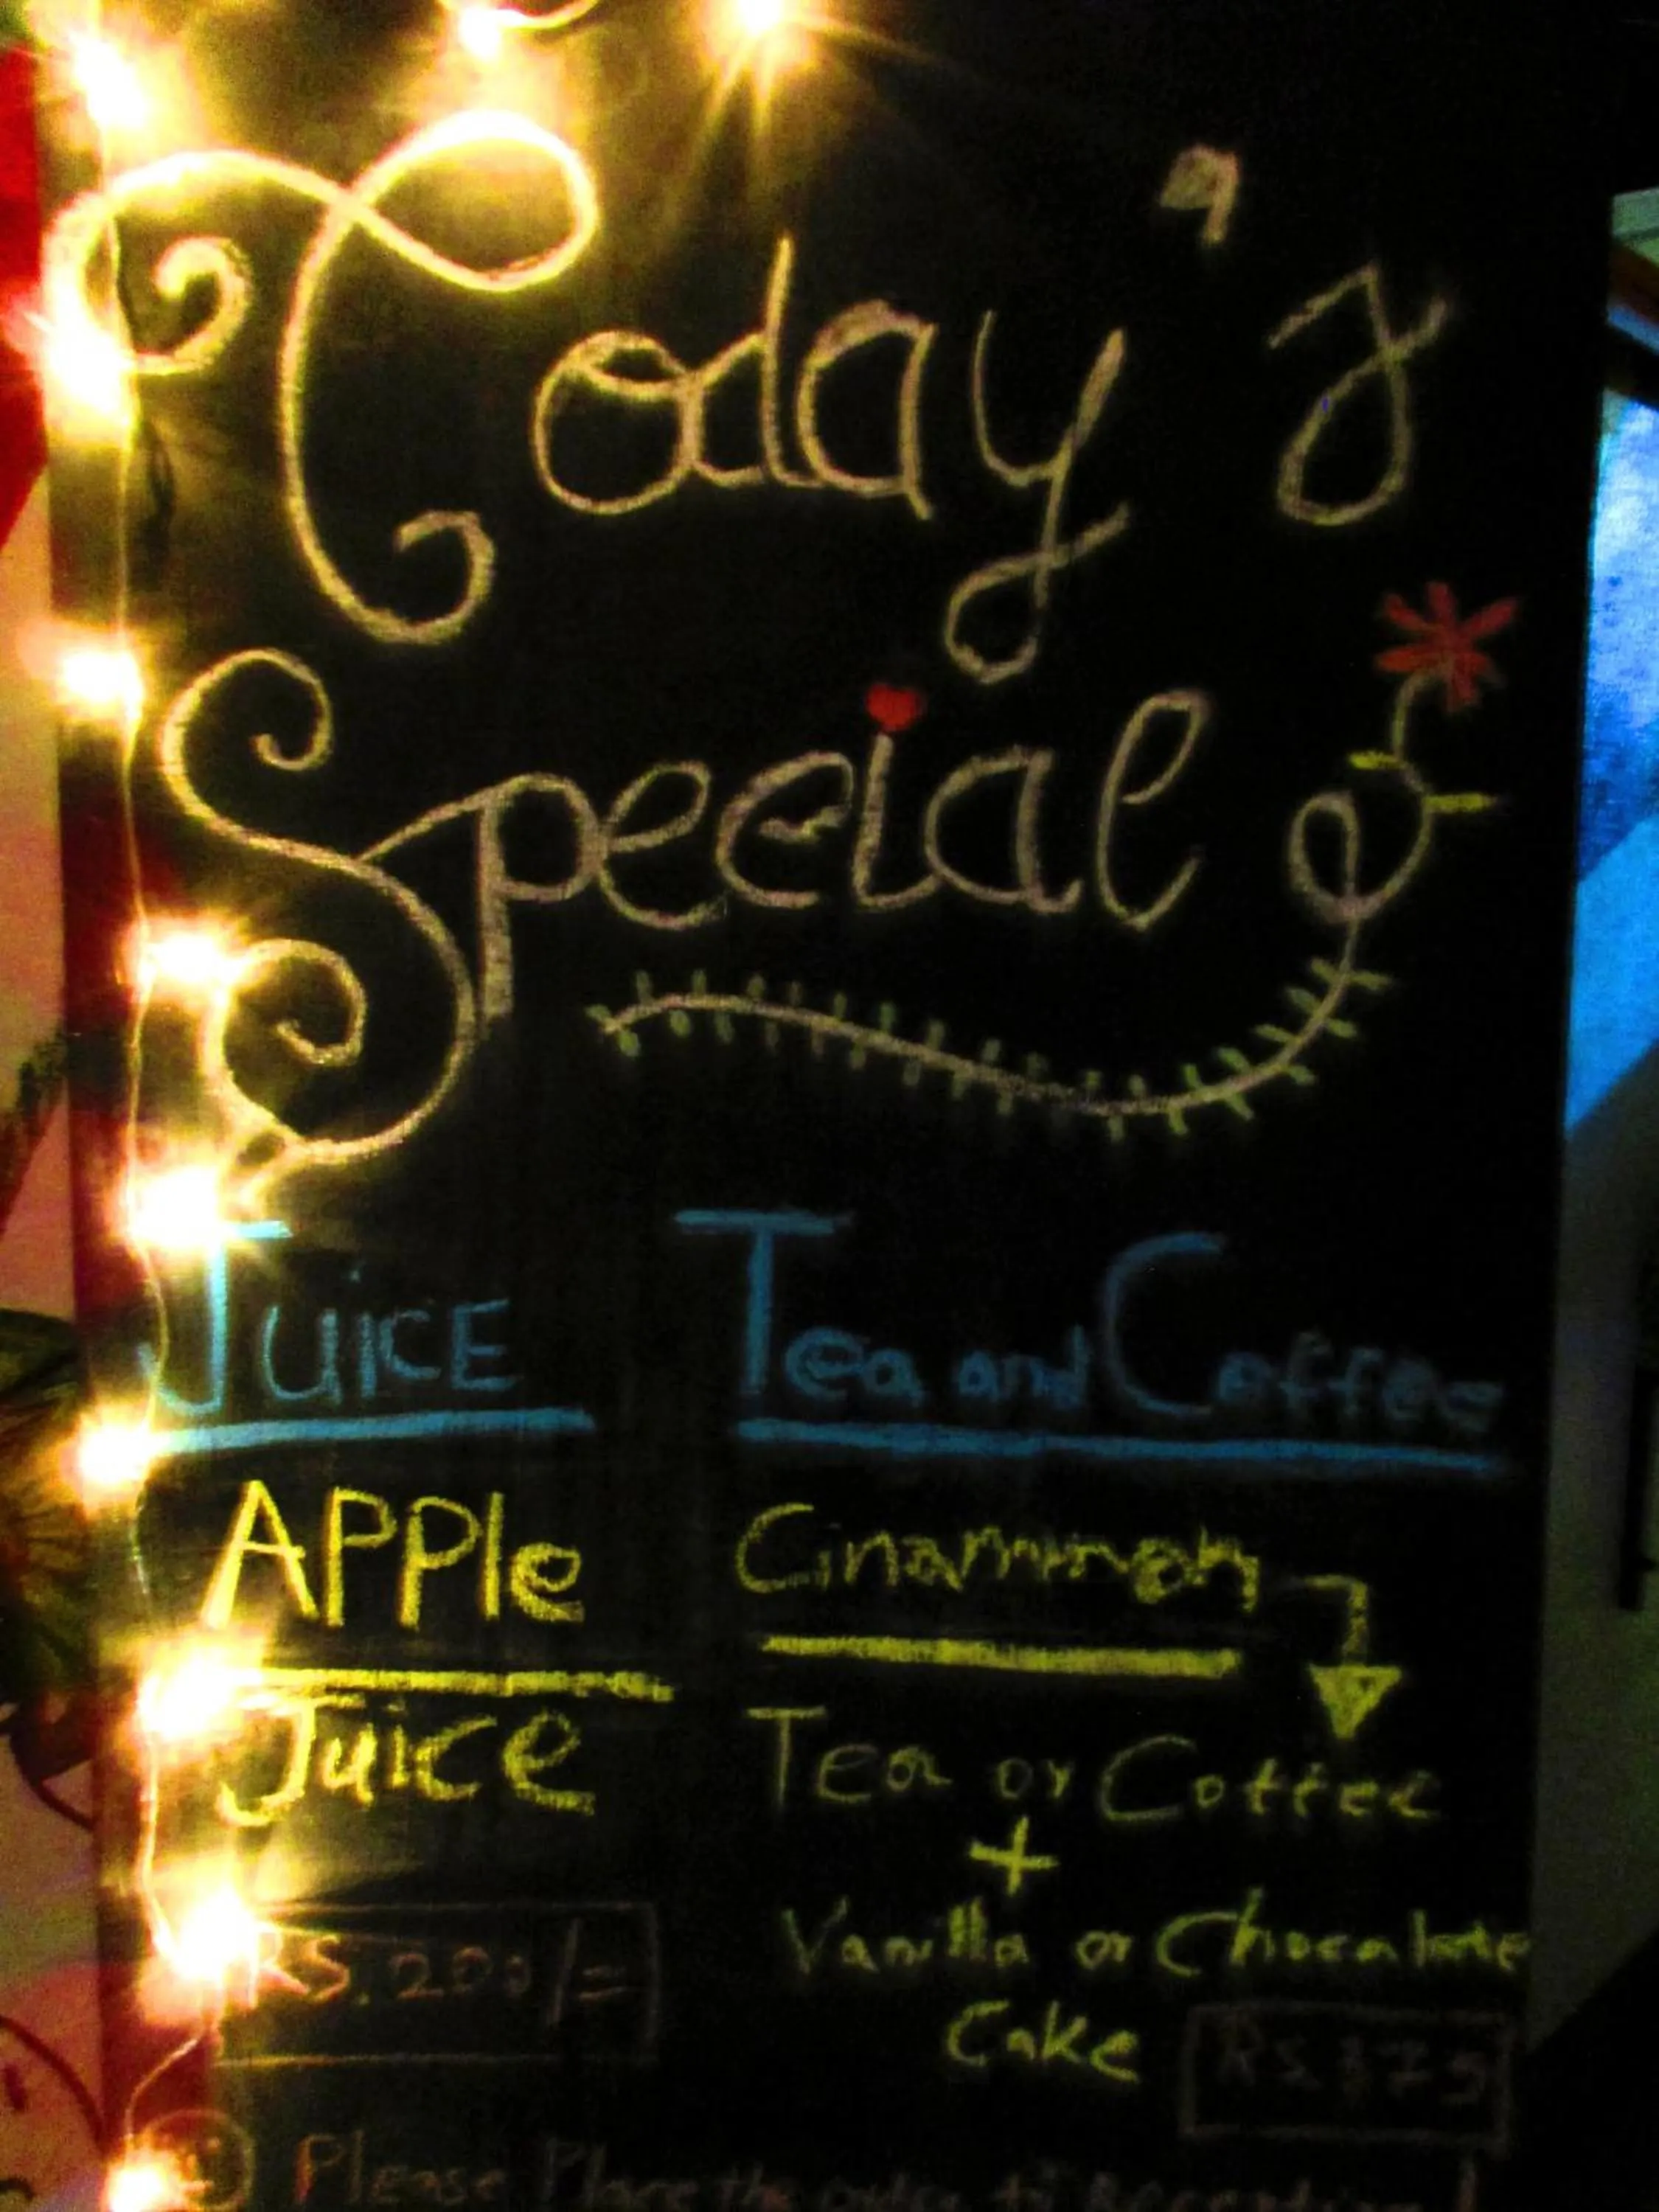 Today's
Special
Juice
APPle
Juice
RS. 200/=
Tea and Coffee
Cinammon
Tea or Coffee
+
Vanilla or Chocalate
Cake
Please Place the order to Reception